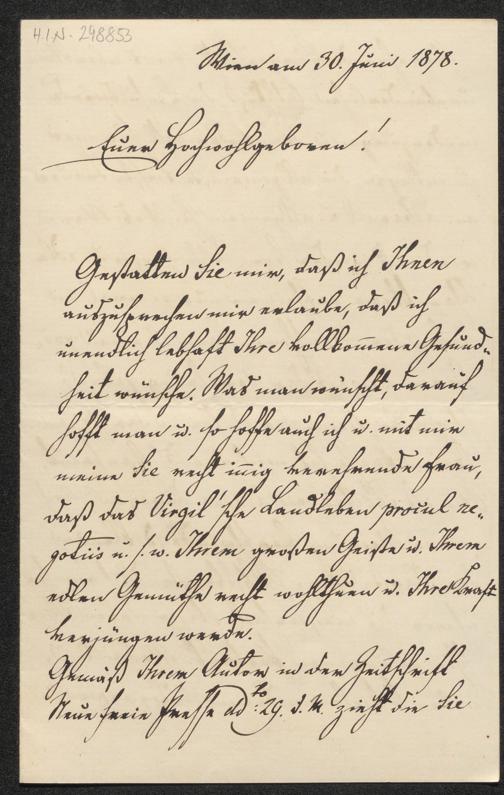 H.I.N. 248853
Wien am 30. Juni 1878.
Euer Hochwohlgeboren!
Gestatten Sie mir, daß ich Ihnen
auszusprechen mir erlaube, daß ich
unendlich lebhaft Ihre vollkommene Gesund-
heit wünsche. Was man wünscht, darauf
hofft man u. so hoffe auch ich u. mit mir
meine Sie recht innig verehrende Frau,
daß das Virgil'sche Landleben procul ne-
gotiis u. s. w. Ihrem großen Geiste u. Ihrem
edlen Gemüthe recht wohlthuen u. Ihre Kraft
verjüngen werde.
Gemäß Ihrem Autor in der Zeitschrift
Neue freie Presse ddto: 29. d. M. zieht die Sie